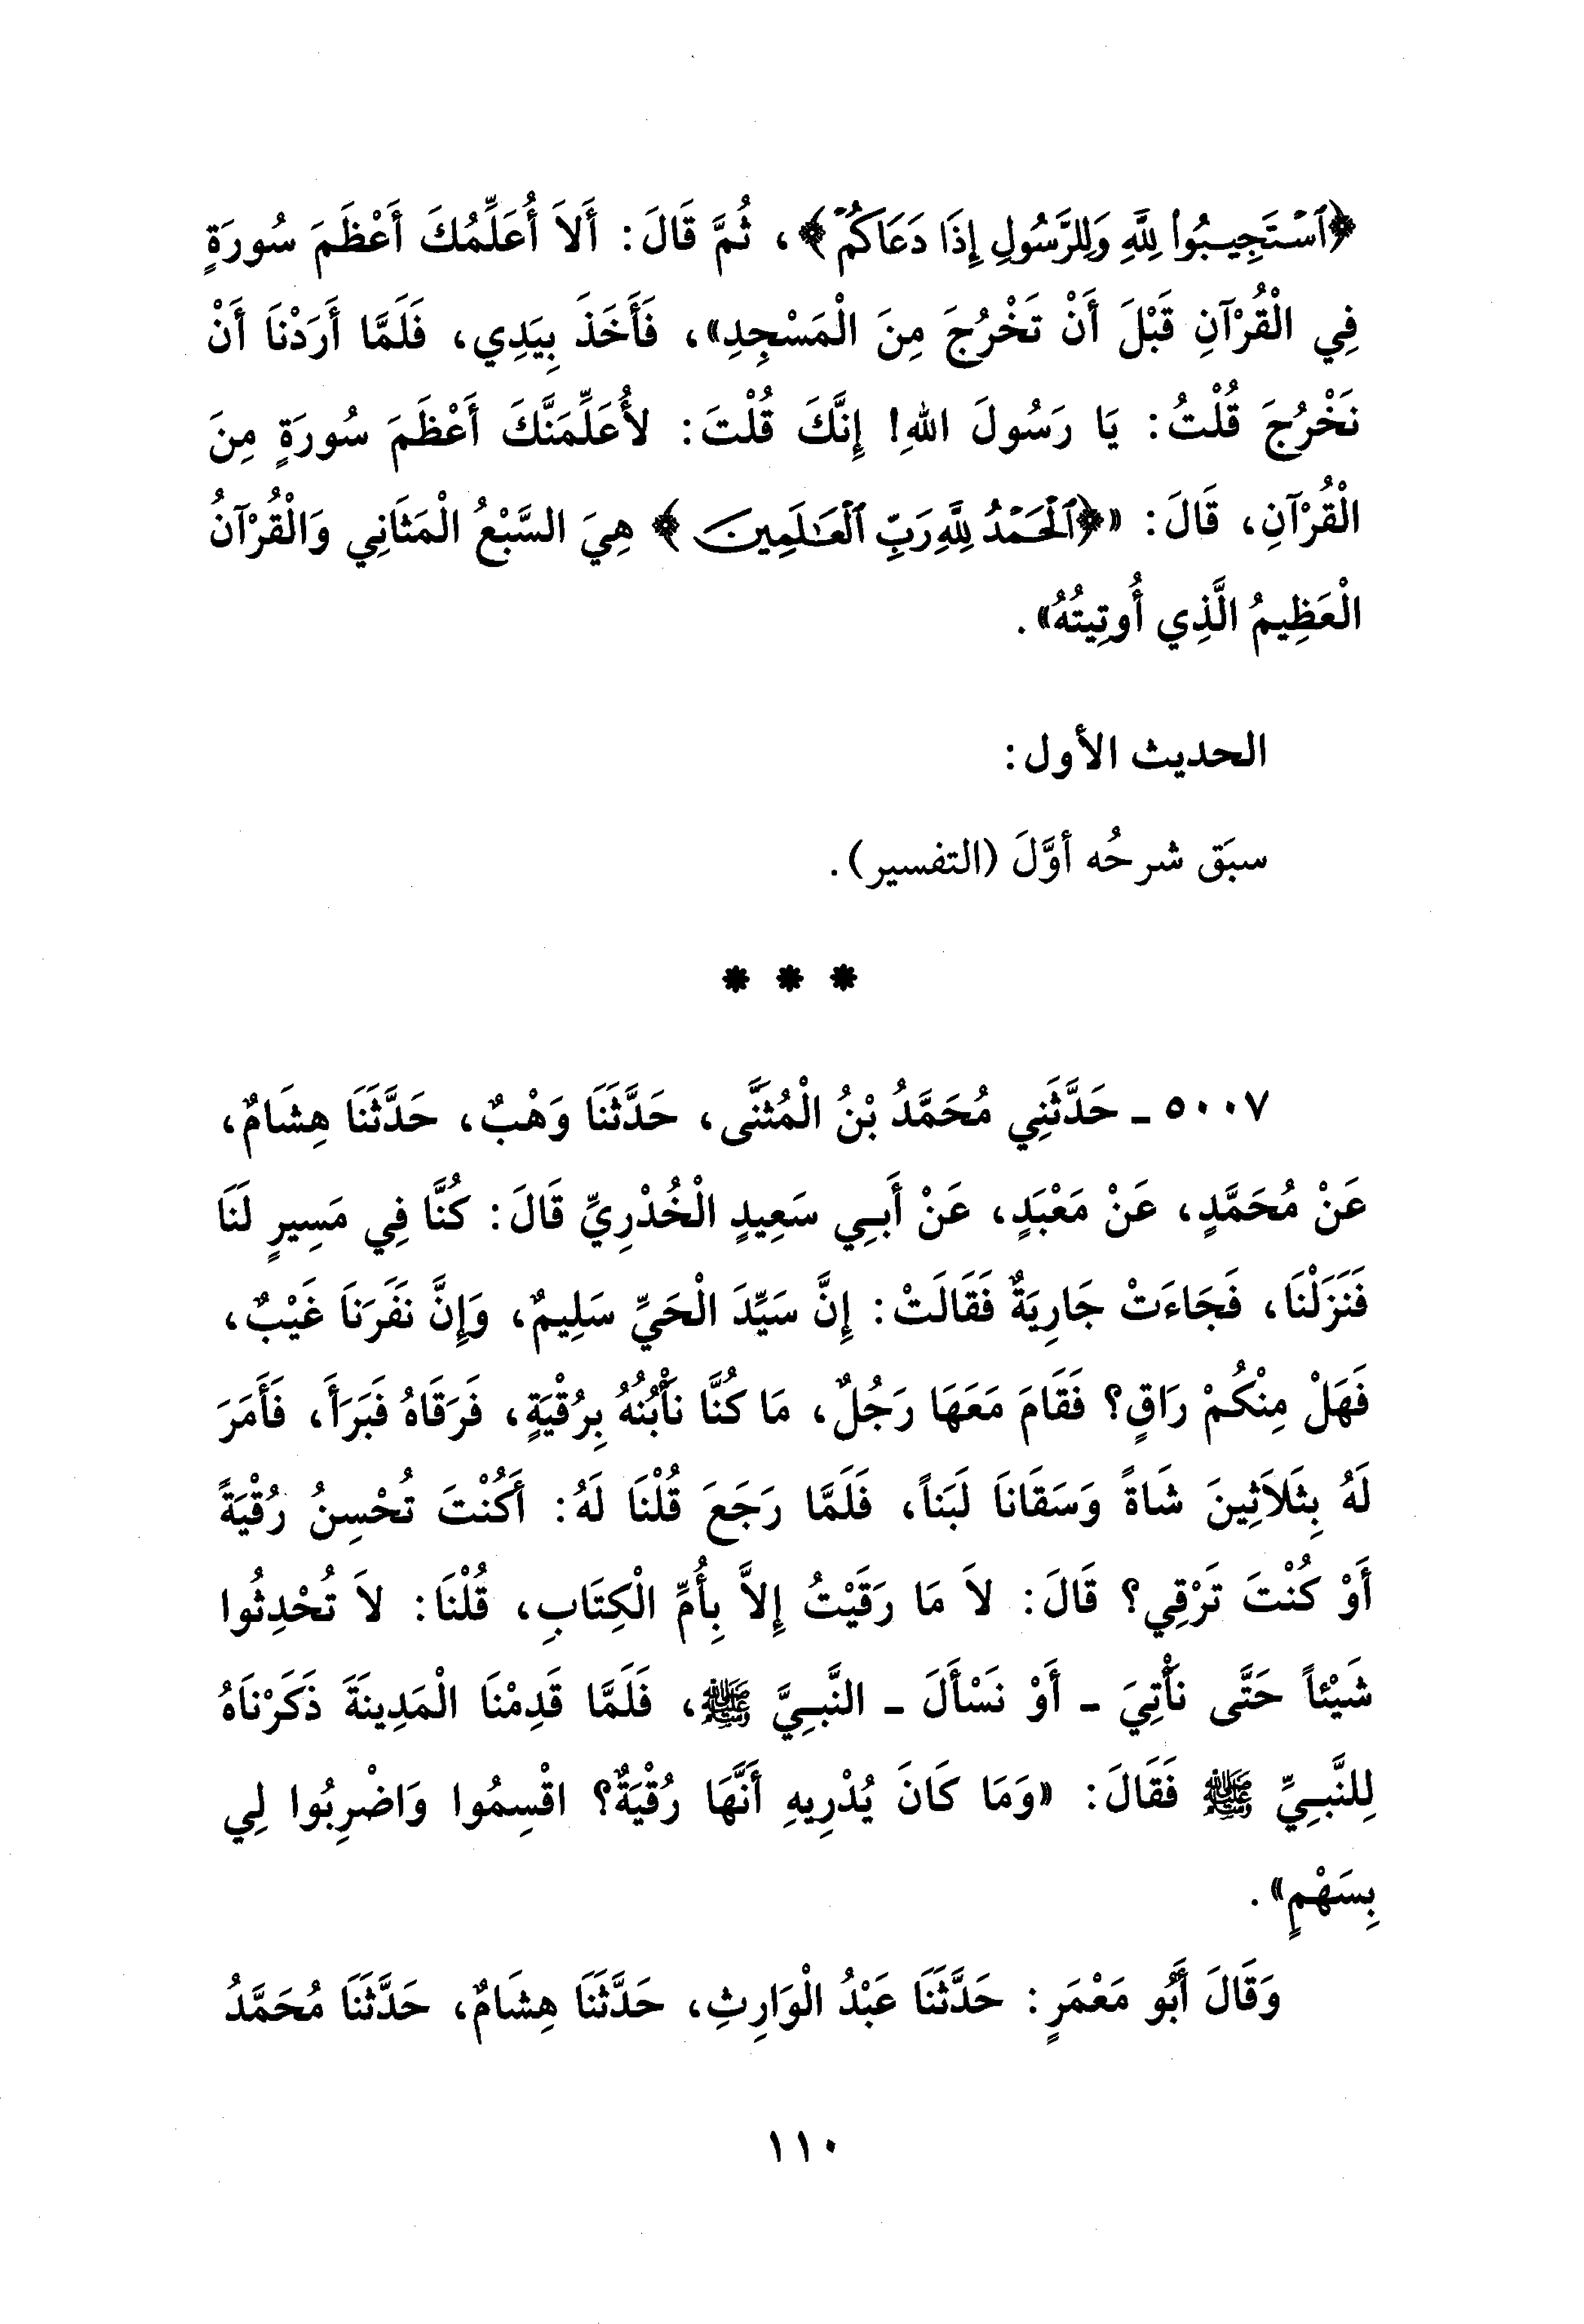 ﴿ٱسْتَجِيبُوا۟ لِلَّهِ وَلِلرَّسُولِ إِذَا دَعَاكُمْ﴾، ثُمَّ قَالَ: أَلاَ أُعَلِّمُكَ أَعْظَمَ سُورَةٍ
فِي الْقُرْآنِ قَبْلَ أَنْ تَخْرُجَ مِنَ الْمَسْجِدِ»، فَأَخَذَ بِيَدِي، فَلَمَّا أَرَدْنَا أَنْ
نَخْرُجَ قُلْتُ: يَا رَسُولَ اللهِ! إِنَّكَ قُلْتَ: لأُعَلِّمَنَّكَ أَعْظَمَ سُورَةٍ مِنَ
الْقُرْآنِ، قَالَ: «﴿ٱلْحَمْدُ لِلَّهِ رَبِّ ٱلْعَـٰلَمِينَ﴾ هِيَ السَّبْعُ الْمَثَانِي وَالْقُرْآنُ
الْعَظِيمُ الَّذِي أُوتِيتُهُ».
الحديث الأول:
سبَق شرحُه أوَّلَ (التفسير).
* * *
٥٠٠٧ ـ حَدَّثَنِي مُحَمَّدُ بْنُ الْمُثَنَّى، حَدَّثَنَا وَهْبٌ، حَدَّثَنَا هِشَامٌ،
عَنْ مُحَمَّدٍ، عَنْ مَعْبَدٍ، عَنْ أَبِي سَعِيدٍ الْخُدْرِيِّ قَالَ: كُنَّا فِي مَسِيرٍ لَنَا
فَنَزَلْنَا، فَجَاءَتْ جَارِيَةٌ فَقَالَتْ: إِنَّ سَيِّدَ الْحَيِّ سَلِيمٌ، وَإِنَّ نَفَرَنَا غَيْبٌ،
فَهَلْ مِنْكُمْ رَاقٍ؟ فَقَامَ مَعَهَا رَجُلٌ، مَا كُنَّا نَأْبُنُهُ بِرُقْيَةٍ، فَرَقَاهُ فَبَرَأَ، فَأَمَرَ
لَهُ بِثَلاَثِينَ شَاةً وَسَقَانَا لَبَناً، فَلَمَّا رَجَعَ قُلْنَا لَهُ: أَكُنْتَ تُحْسِنُ رُقْيَةً
أَوْ كُنْتَ تَرْقِي؟ قَالَ: لاَ مَا رَقَيْتُ إِلاَّ بِأُمِّ الْكِتَابِ، قُلْنَا: لاَ تُحْدِثُوا
شَيْئاً حَتَّى نَأْتِيَ ـ أَوْ نَسْأَلَ ـ النَّبِيَّ ﷺ، فَلَمَّا قَدِمْنَا الْمَدِينَةَ ذَكَرْنَاهُ
لِلنَّبِيِّ ﷺ فَقَالَ: «وَمَا كَانَ يُدْرِيهِ أَنَّهَا رُقْيَةٌ؟ اقْسِمُوا وَاضْرِبُوا لِي
بِسَهْمٍ».
وَقَالَ أَبُو مَعْمَرٍ: حَدَّثَنَا عَبْدُ الْوَارِثِ، حَدَّثَنَا هِشَامٌ، حَدَّثَنَا مُحَمَّدُ
١١٠